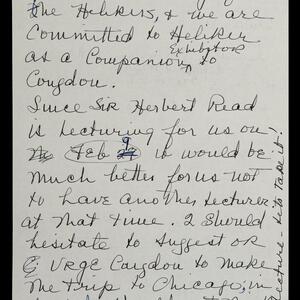 the Helikers, & we are
Committed to Heliker
as a Companion Exhibitor to
Congdon.
Since Sir Herbert Read
is Lecturing for us on
Feb 9 it would be
much better for us not
to have another Lecturer
at that time. I should
hesitate to suggest or
urge Congdon to make
the trip to Chicago, in
Lecture - let's take it!